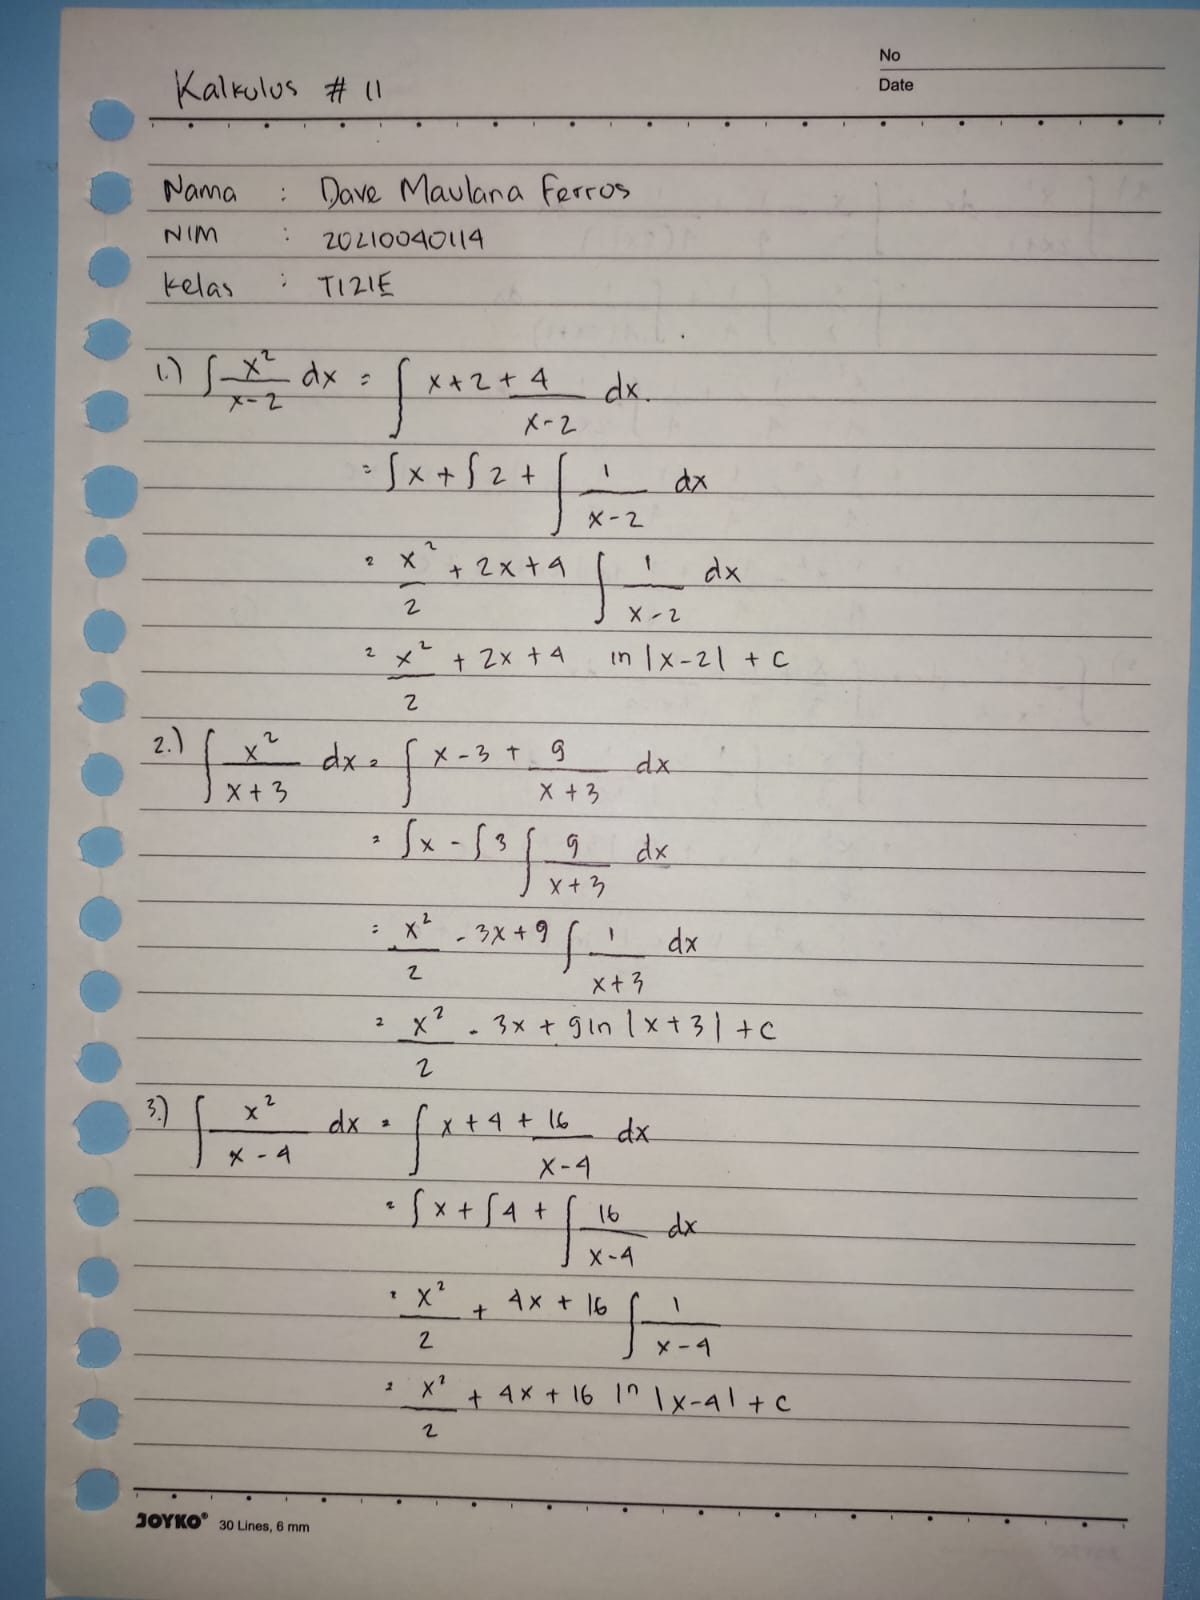 No
Kalkulus # 11
Date
Nama : Dave Maulana Ferros
NIM : 20210040114
Kelas : TI21E
1.) ∫ x²/x-2 dx = ∫ x+2+ 4/x-2 dx.
= ∫x + ∫2 + ∫ 1/x-2 dx
= x²/2 + 2x+4 ∫ 1/x-2 dx
= x²/2 + 2x+4 ln |x-2| + C
2.) ∫ x²/x+3 dx = ∫ x-3+ 9/x+3 dx
= ∫x - ∫3 ∫ 9/x+3 dx
= x²/2 - 3x+9 ∫ 1/x+3 dx
= x²/2 - 3x + 9ln |x+3| + C
3.) ∫ x²/x-4 dx = ∫ x+4+ 16/x-4 dx
= ∫x + ∫4 + ∫ 16/x-4 dx
= x²/2 + 4x + 16 ∫ 1/x-4
= x²/2 + 4x + 16 ln |x-4| + C
JOYKO® 30 Lines, 6 mm